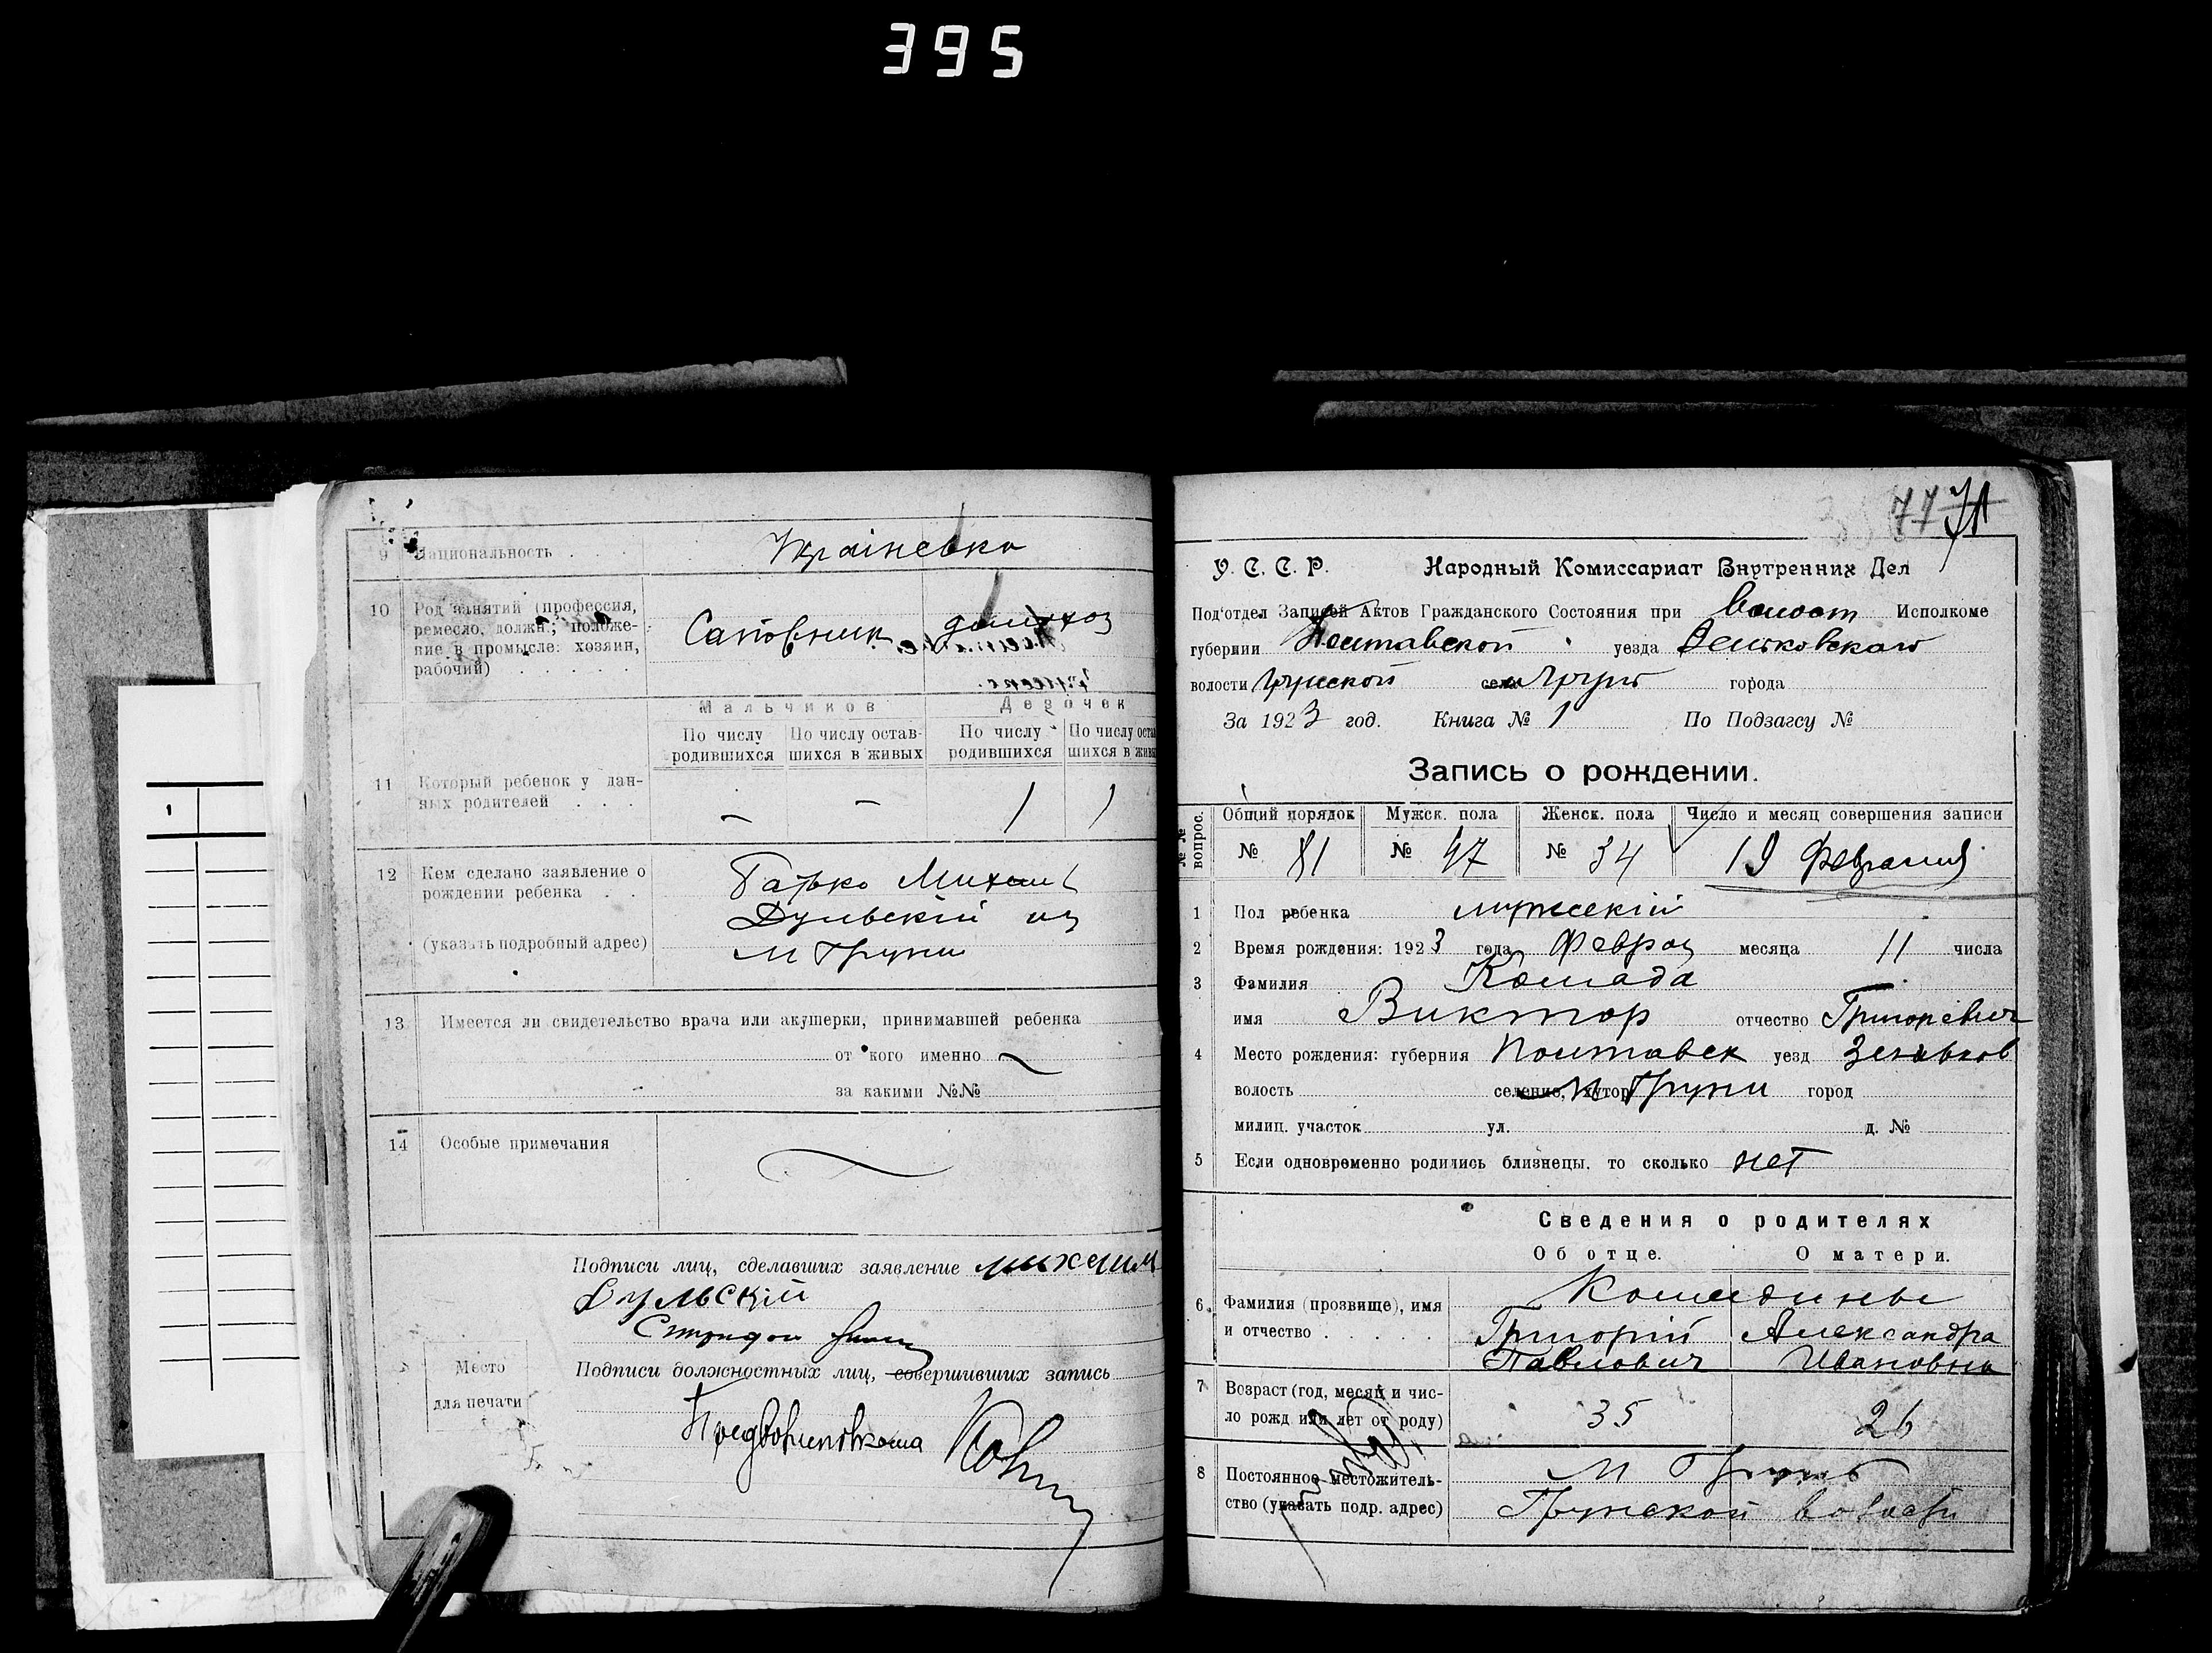 395
9 Национальность . . . Українська
10 Род занятий (профессия,
ремесло, должн.; положе-
ние в промысле: хозяин,
рабочий) . . . .
Сапожник
домохоз
Мальчиков Девочек
По числу родившихся По числу остав-шихся в живых По числу родившихся По числу оста шихся в живы
11 Который ребенок у дан-
ных родителей . . . – – 1 1
12 Кем сделано заявление о
рождении ребенка . .
(указать подробный адрес)
Батько Михаил
Дульскій из
м Груни
13 Имеется ли свидетельство врача или акушерки, принимавшей ребенка
от кого именно
за какими №№
14 Особые примечания
Подписи лиц, сделавших заявление михаил
Дульский
Место
для печати
Подписи должностных лиц, совершивших запись
77 71
У. С. С. Р. Народный Комиссариат Внутренних Дел
Под'отдел Записей Актов Гражданского Состояния при Волост Исполкоме
губернии Полтавской уезда Зеньковского
волости Грунской села м Грунь города
За 1923 год. Книга № 1 По Подзагсу №
Запись о рождении.
№№ вопрос. Общий порядок Мужск. пола Женск. пола Число и месяц совершения записи
№ 81 № 47 № 34 19 Февраля
1 Пол ребенка мужской
2 Время рождения: 1923 года Феврал месяца 11 числа
3 Фамилия Коляда
имя Виктор отчество Григоревич
4 Место рождения: губерния Полтавск уезд Зеньков
волость селение, хутор м Груни город
милиц. участок ул. д. №
5 Если одновременно родились близнецы. то сколько нет
Сведения о родителях
Об отце. О матери.
6. Фамилия (прозвище), имя
и отчество . . . . .
Григорій Александра
Павлович Ивановна
7 Возраст (год, месяц и чис-
ло рожд или лет от роду) 35 26
8 Постоянное местожитель-
ство (указать подр. адрес)
м Грунь
Грунской волости